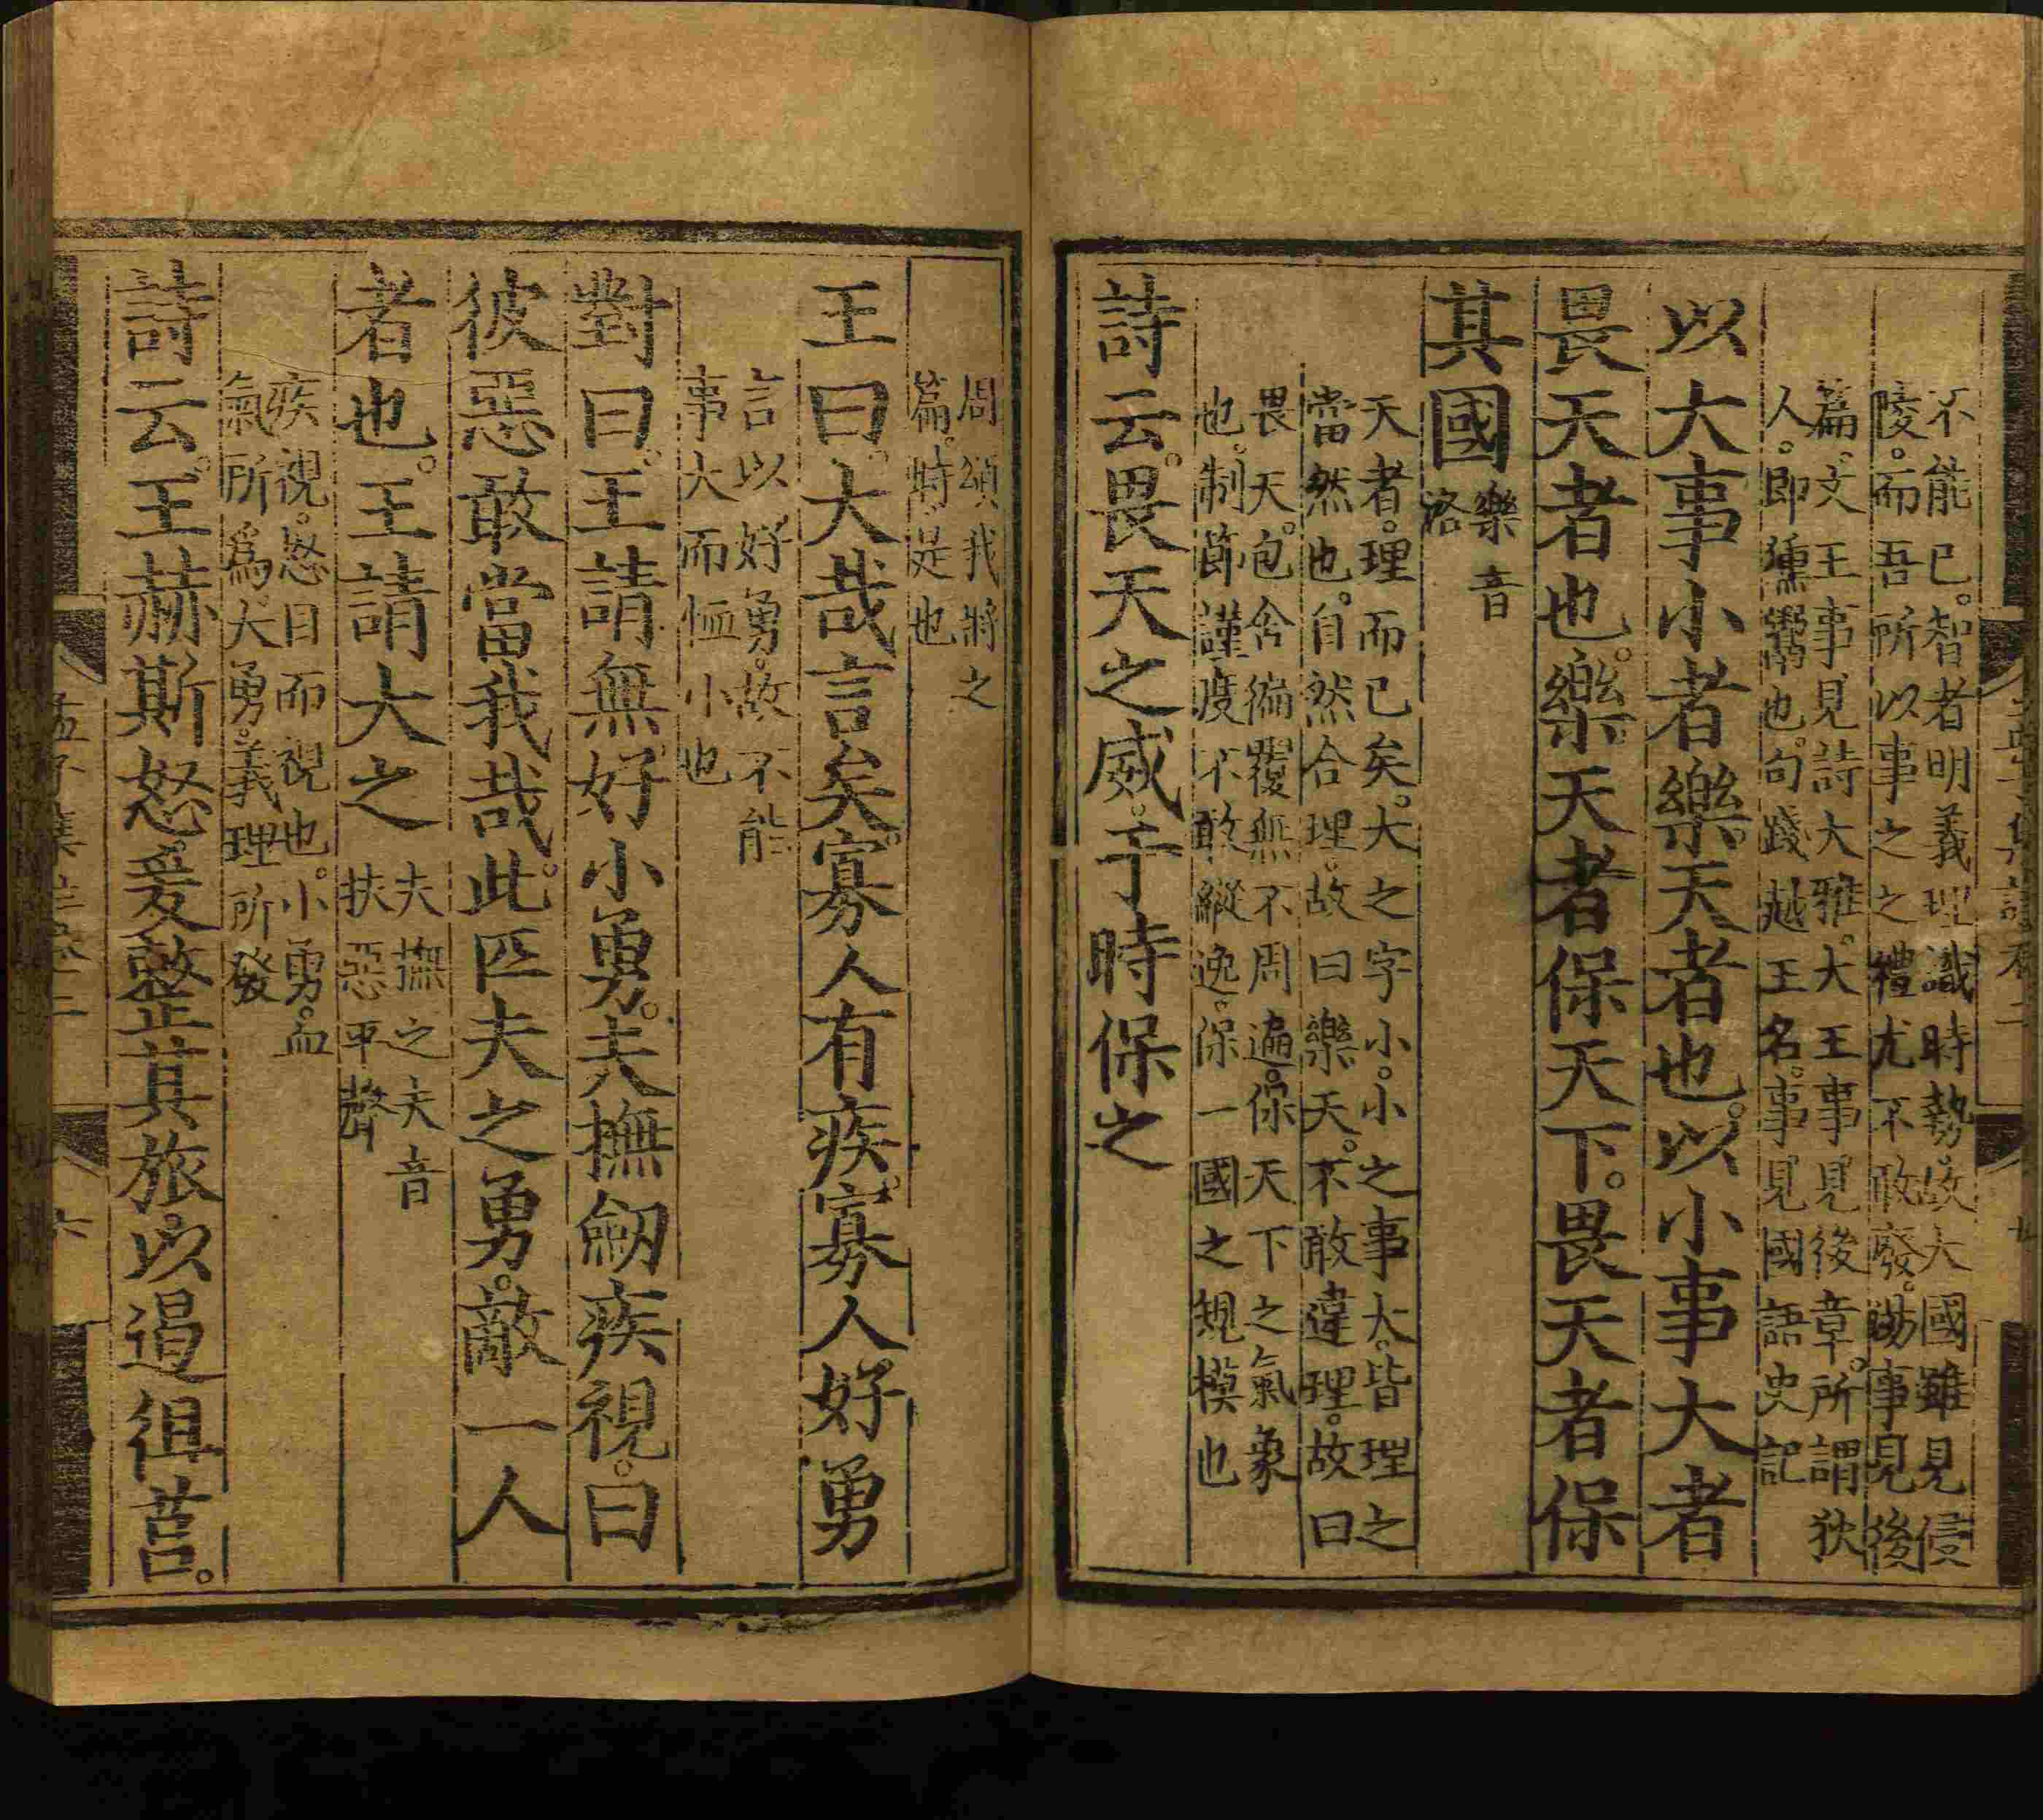 不能已。智者明義理識時勢。故大國雖見侵
陵。而吾所以事之之禮尤不敢廢。湯事見後
篇。文王事見詩大雅。大王事見後章。所謂狄
人。即獯鬻也。句踐越王名。事見國語史記
以大事小者樂天者也。以小事大者
畏天者也。樂天者保天下。畏天者保
其國
樂音
洛
天者。理而已矣。大之字小。小之事大。皆理之
當然也。自然合理。故曰樂天。不敢違理。故曰
畏天。包含徧覆無不周遍。保天下之氣象
也。制節謹度不敢縱逸。保一國之規模也
詩云。畏天之威。于時保之
周頌我將之
篇。時。是也
王曰。大哉言矣。寡人有疾。寡人好勇
言以好勇。故不能
事大而恤小也
對曰。王請無好小勇。夫撫劒疾視。曰
彼惡敢當我哉。此匹夫之勇。敵一人
者也。王請大之
夫撫之夫音
扶惡平聲
疾視。怒目而視也。小勇。血
氣所爲。大勇。義理所發
詩云。王赫斯怒爰整其旅。以遏徂莒。